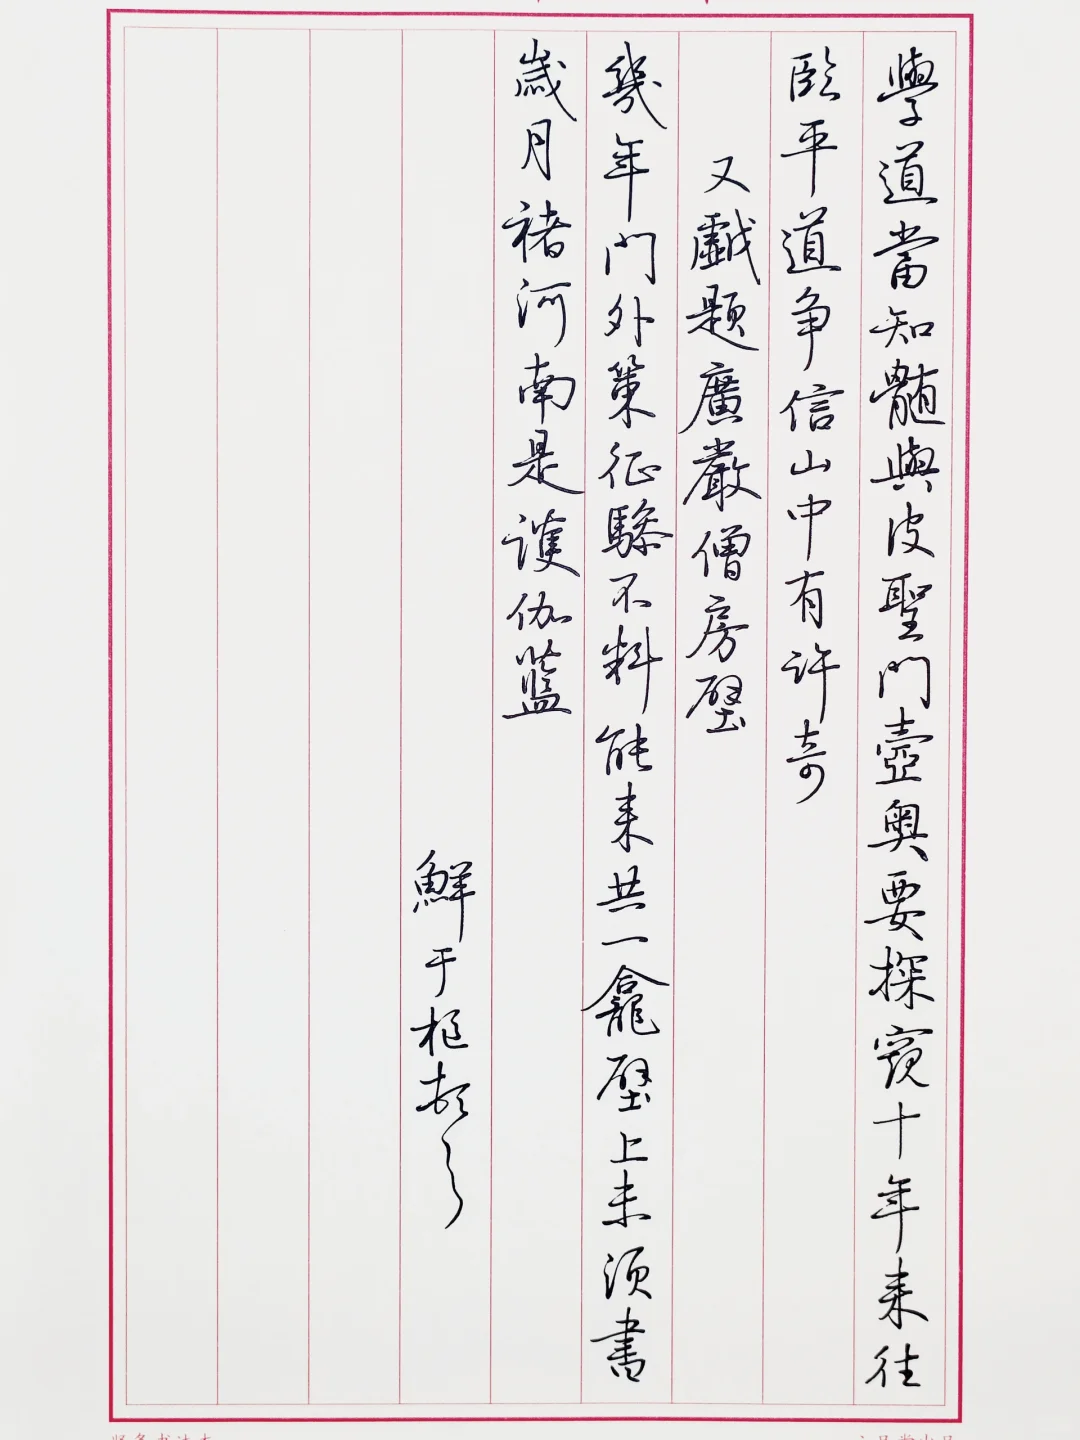 學道當知髓與皮聖門壺奧要探窺十年來往
臨平道爭信山中有許奇
又戲題廣嚴僧房壁
幾年門外策征驂不料能來共一龕壁上未須書
歲月褚河南是護伽藍
鮮于樞頓首